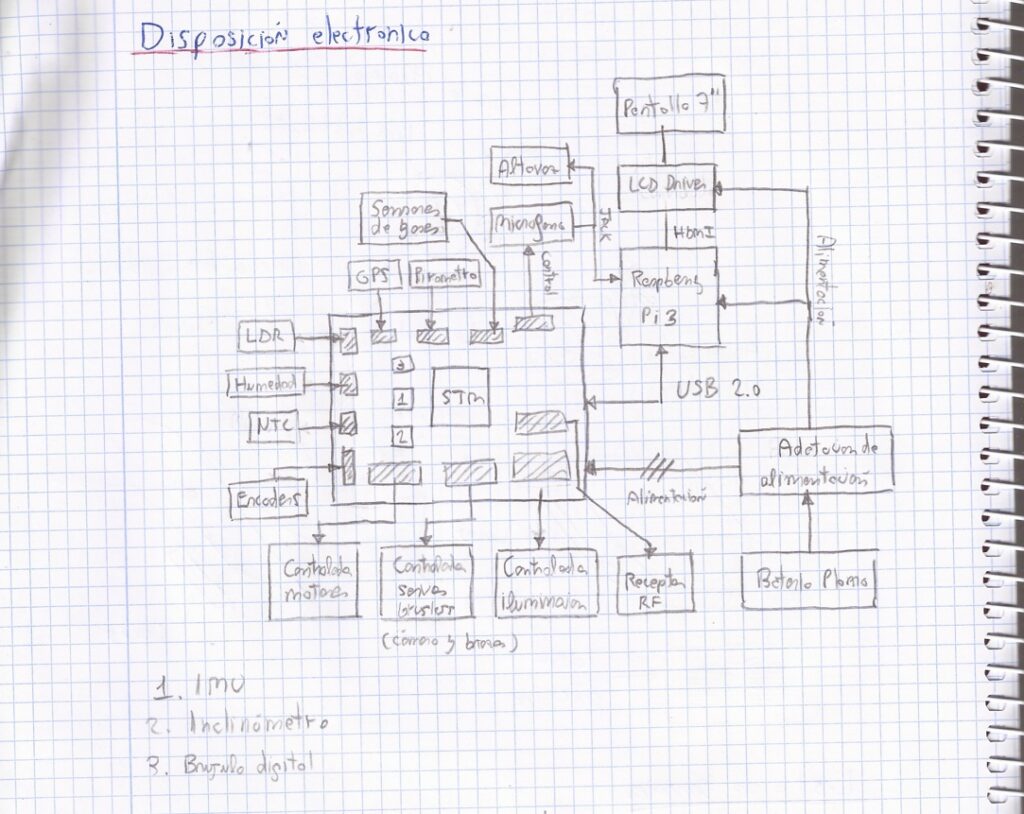 Disposición electrónica
Pantalla 7"
Altavoz
LCD Driver
Sensores
de gases
Microfono
JACK
HDMI
Alimentación
Control
GPS
Pirometro
Raspberry
Pi 3
LDR
Humedad
3
STM
USB 2.0
1
NTC
2
Adaptador de
alimentación
Encoders
Alimentación
Controlada
motores
Controlada
servos
brusless
Controlada
iluminacion
Receptor
RF
Bateria Plomo
(cámara y brazos)
1. IMU
2. Inclinómetro
3. Brujula digital